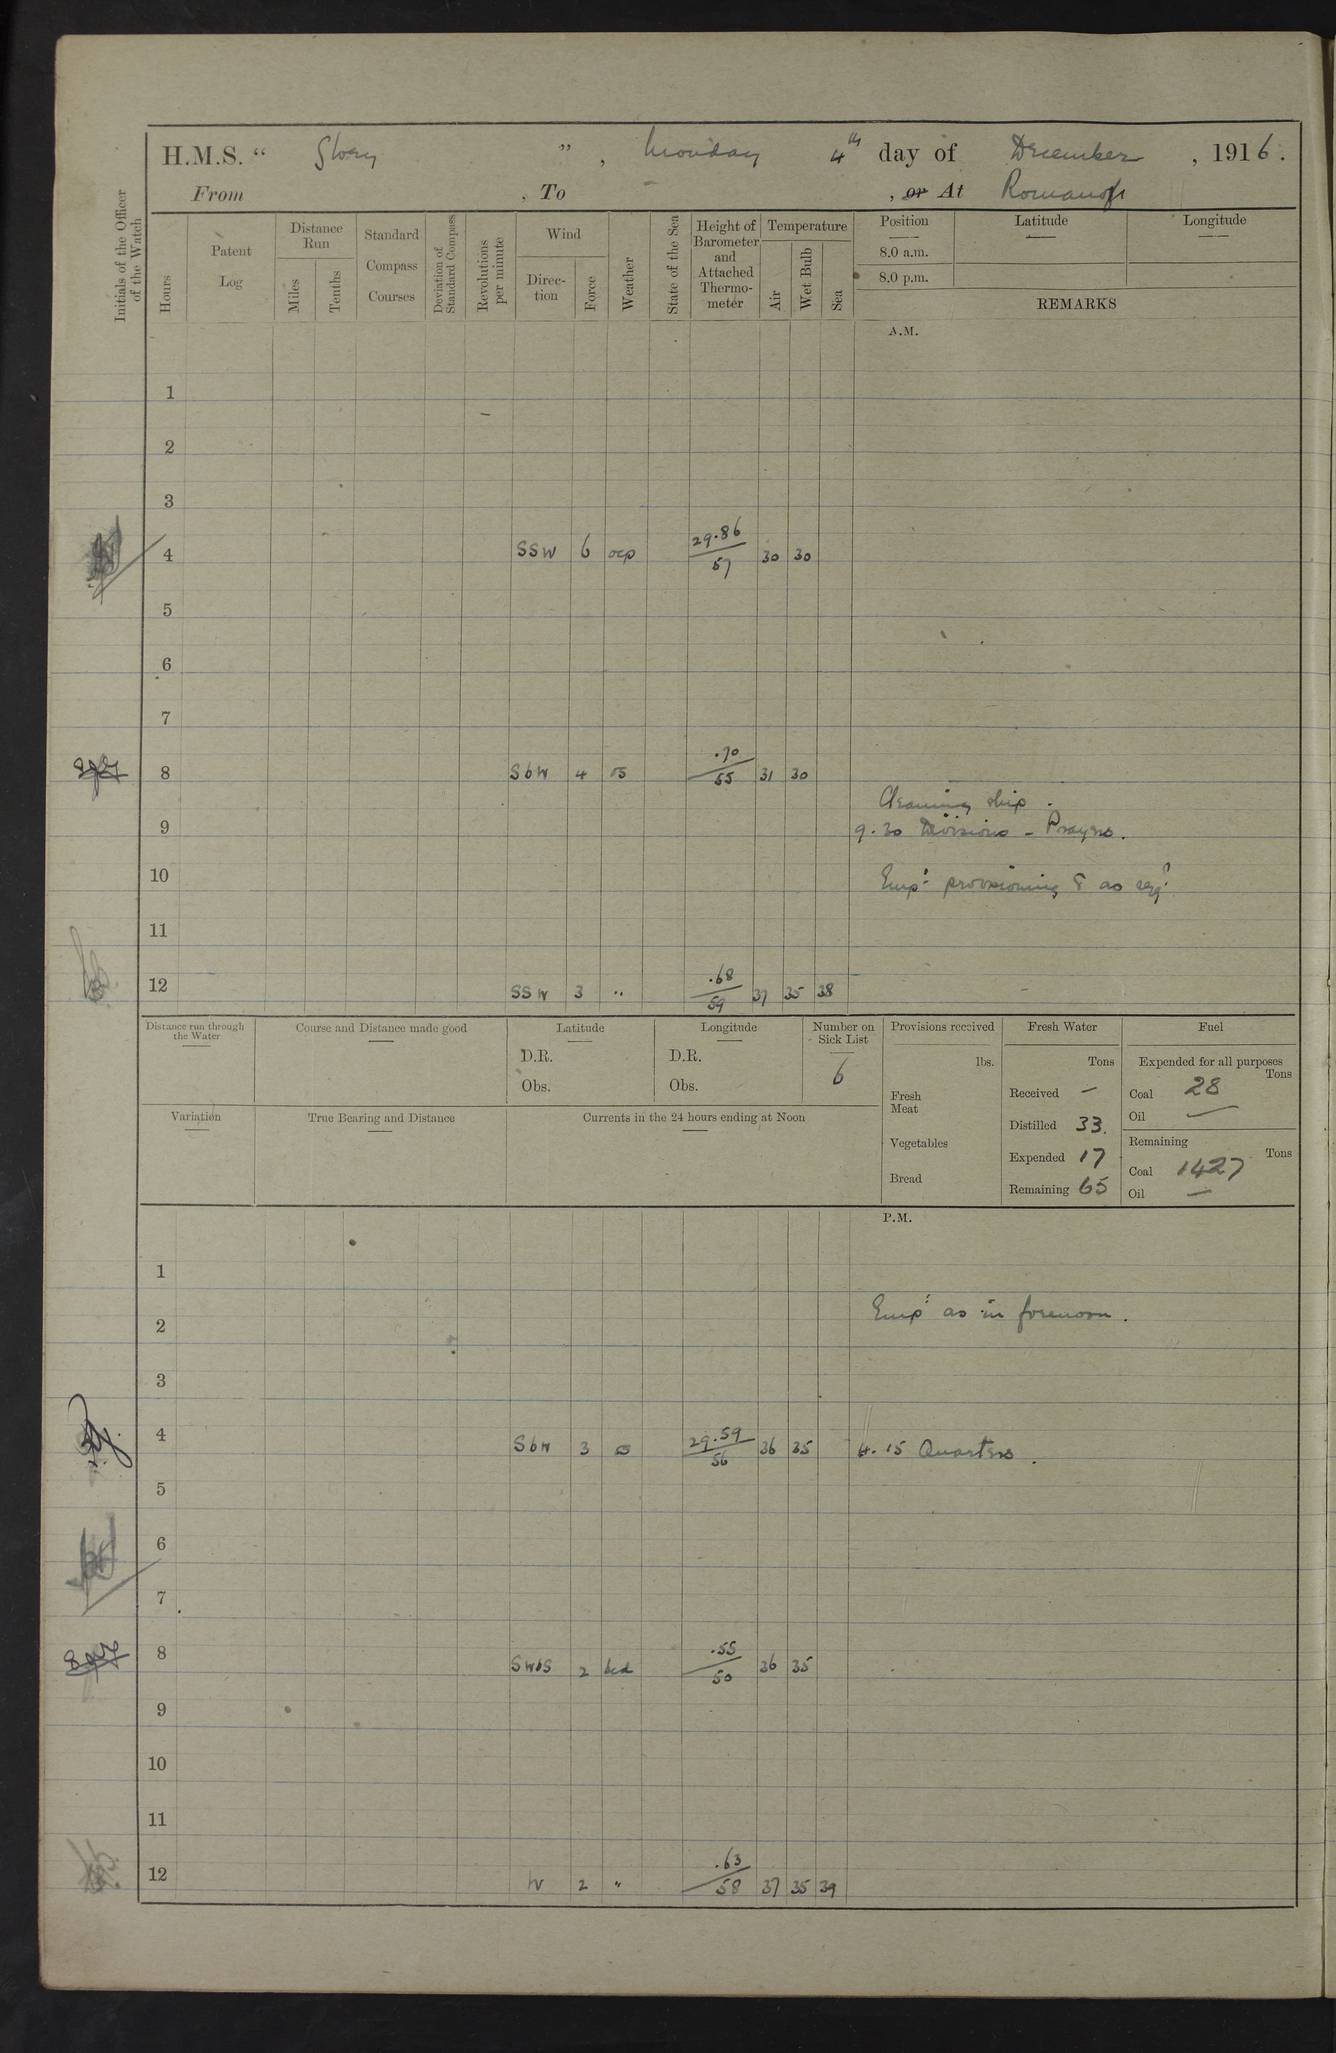 H.M.S. “ Glory ” , Monday 4th day of December , 1916.
From , To , or At Romanoff
Initials of the Officer of the Watch
Hours
Patent Log
Distance Run
Miles
Tenths
Standard Compass Courses
Deviation of Standard Compass
Revolutions per minute
Wind
Direc-tion
Force
Weather
State of the Sea
Height of Barometer and Attached Thermo-meter
Temperature
Air
Wet Bulb
Sea
Position
8.0 a.m.
8.0 p.m.
Latitude
Longitude
REMARKS
A.M.
1
2
3
4 SSW 6 ocp 29.86/57 30 30
5
6
7
8 SbW 4 os .70/55 31 30
Cleaning ship .
9 9.30 Divisions - Prayers.
10 Emp: provisioning & as req:
11
12 SSW 3 " .68/59 37 35 38
Distance run through the Water
Course and Distance made good
Latitude
D.R.
Obs.
Longitude
D.R.
Obs.
Number on Sick List
6
Provisions received
lbs.
Fresh Meat
Vegetables
Bread
Fresh Water
Tons
Received —
Distilled 33.
Expended 17
Remaining 65
Fuel
Expended for all purposes
Tons
Coal 28
Oil —
Remaining
Tons
Coal 1427
Oil —
Variation
True Bearing and Distance
Currents in the 24 hours ending at Noon
P.M.
1
Emp: as in forenoon.
2
3
4 SbW 3 os 29.59/56 36 35 4.15 Quarters.
5
6
7
8 SWbS 2 bcd .55/50 36 35
9
10
11
12 W 2 " .63/58 37 35 39